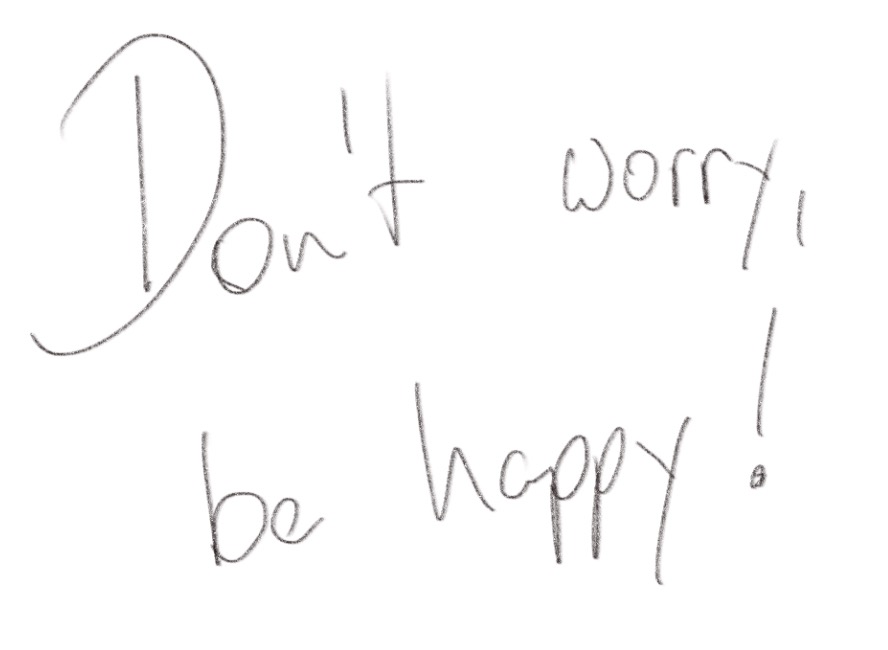 Don't worry,
be happy!